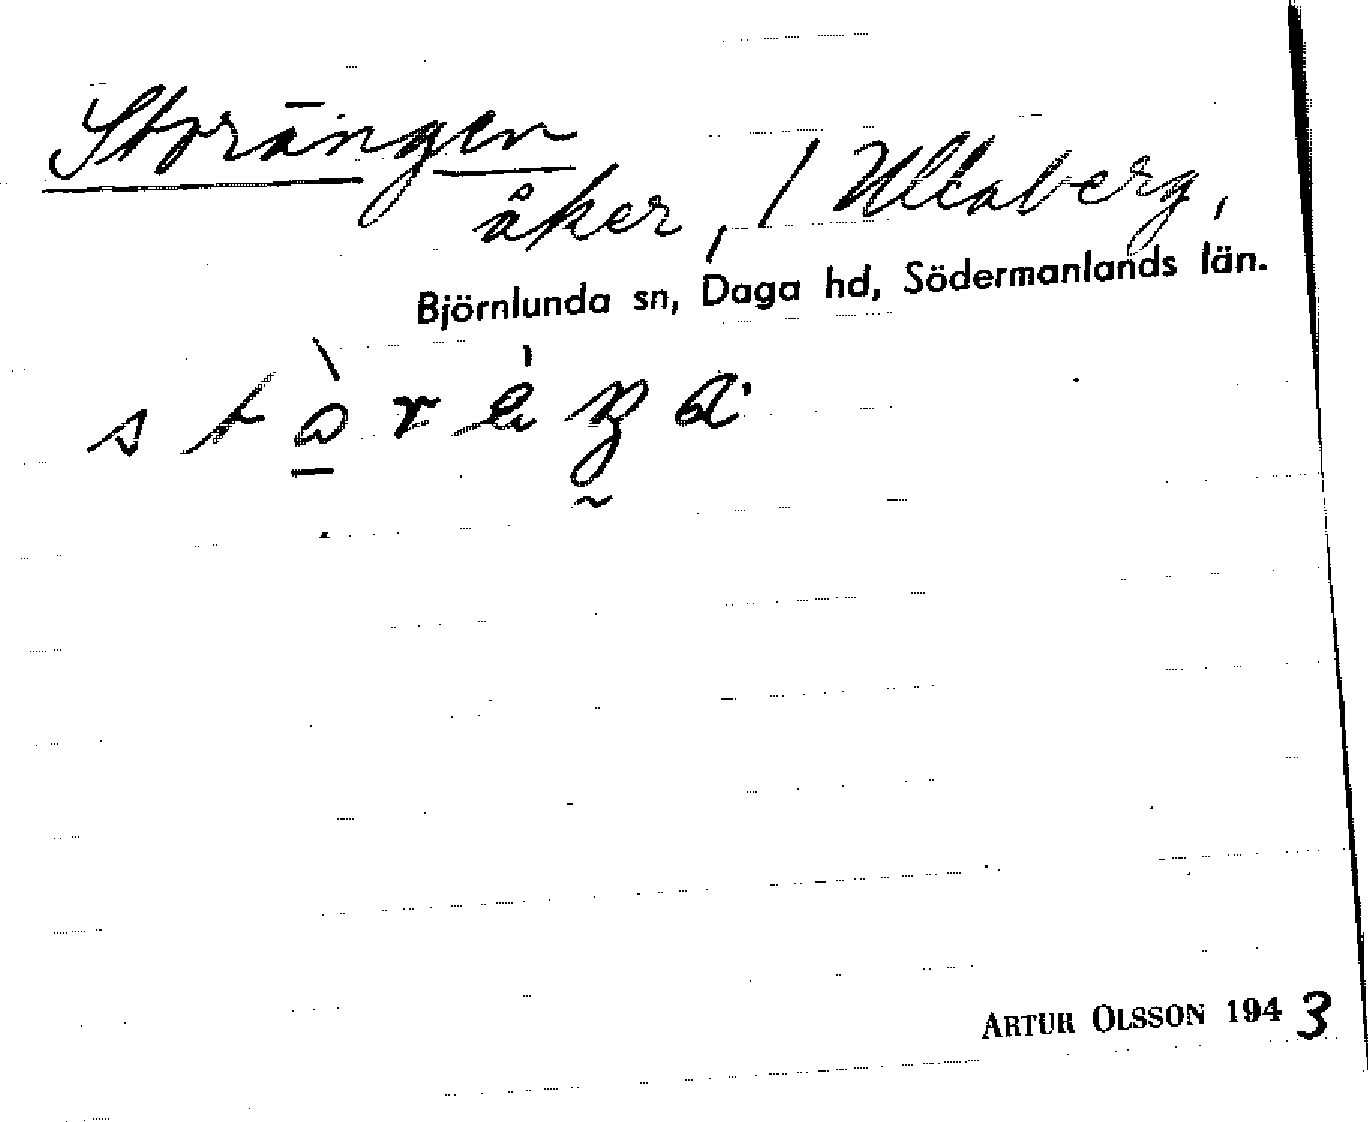 Storängen
åker, / Ullaberg,
Björnlunda sn, Daga hd, Södermanlands län.
ARTUR OLSSON 1943